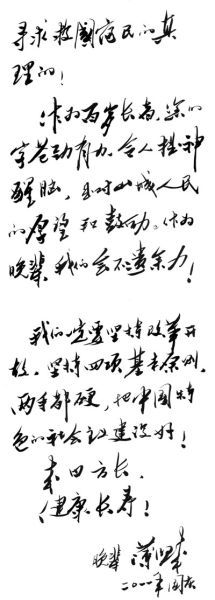 寻求救国富民的真
理的！
作为百岁长者，您的
字苍劲有力，令人提神
醒脑，且对山城人民
的厚望和鼓励，作为
晚辈，我们会不遗余力！
我们一定要坚持改革开
放，坚持四项基本原则，
两手都硬，把中国特
色的社会主义建设好！
来日方长，
健康长寿！
晚辈 薄熙来
二〇一一年国庆